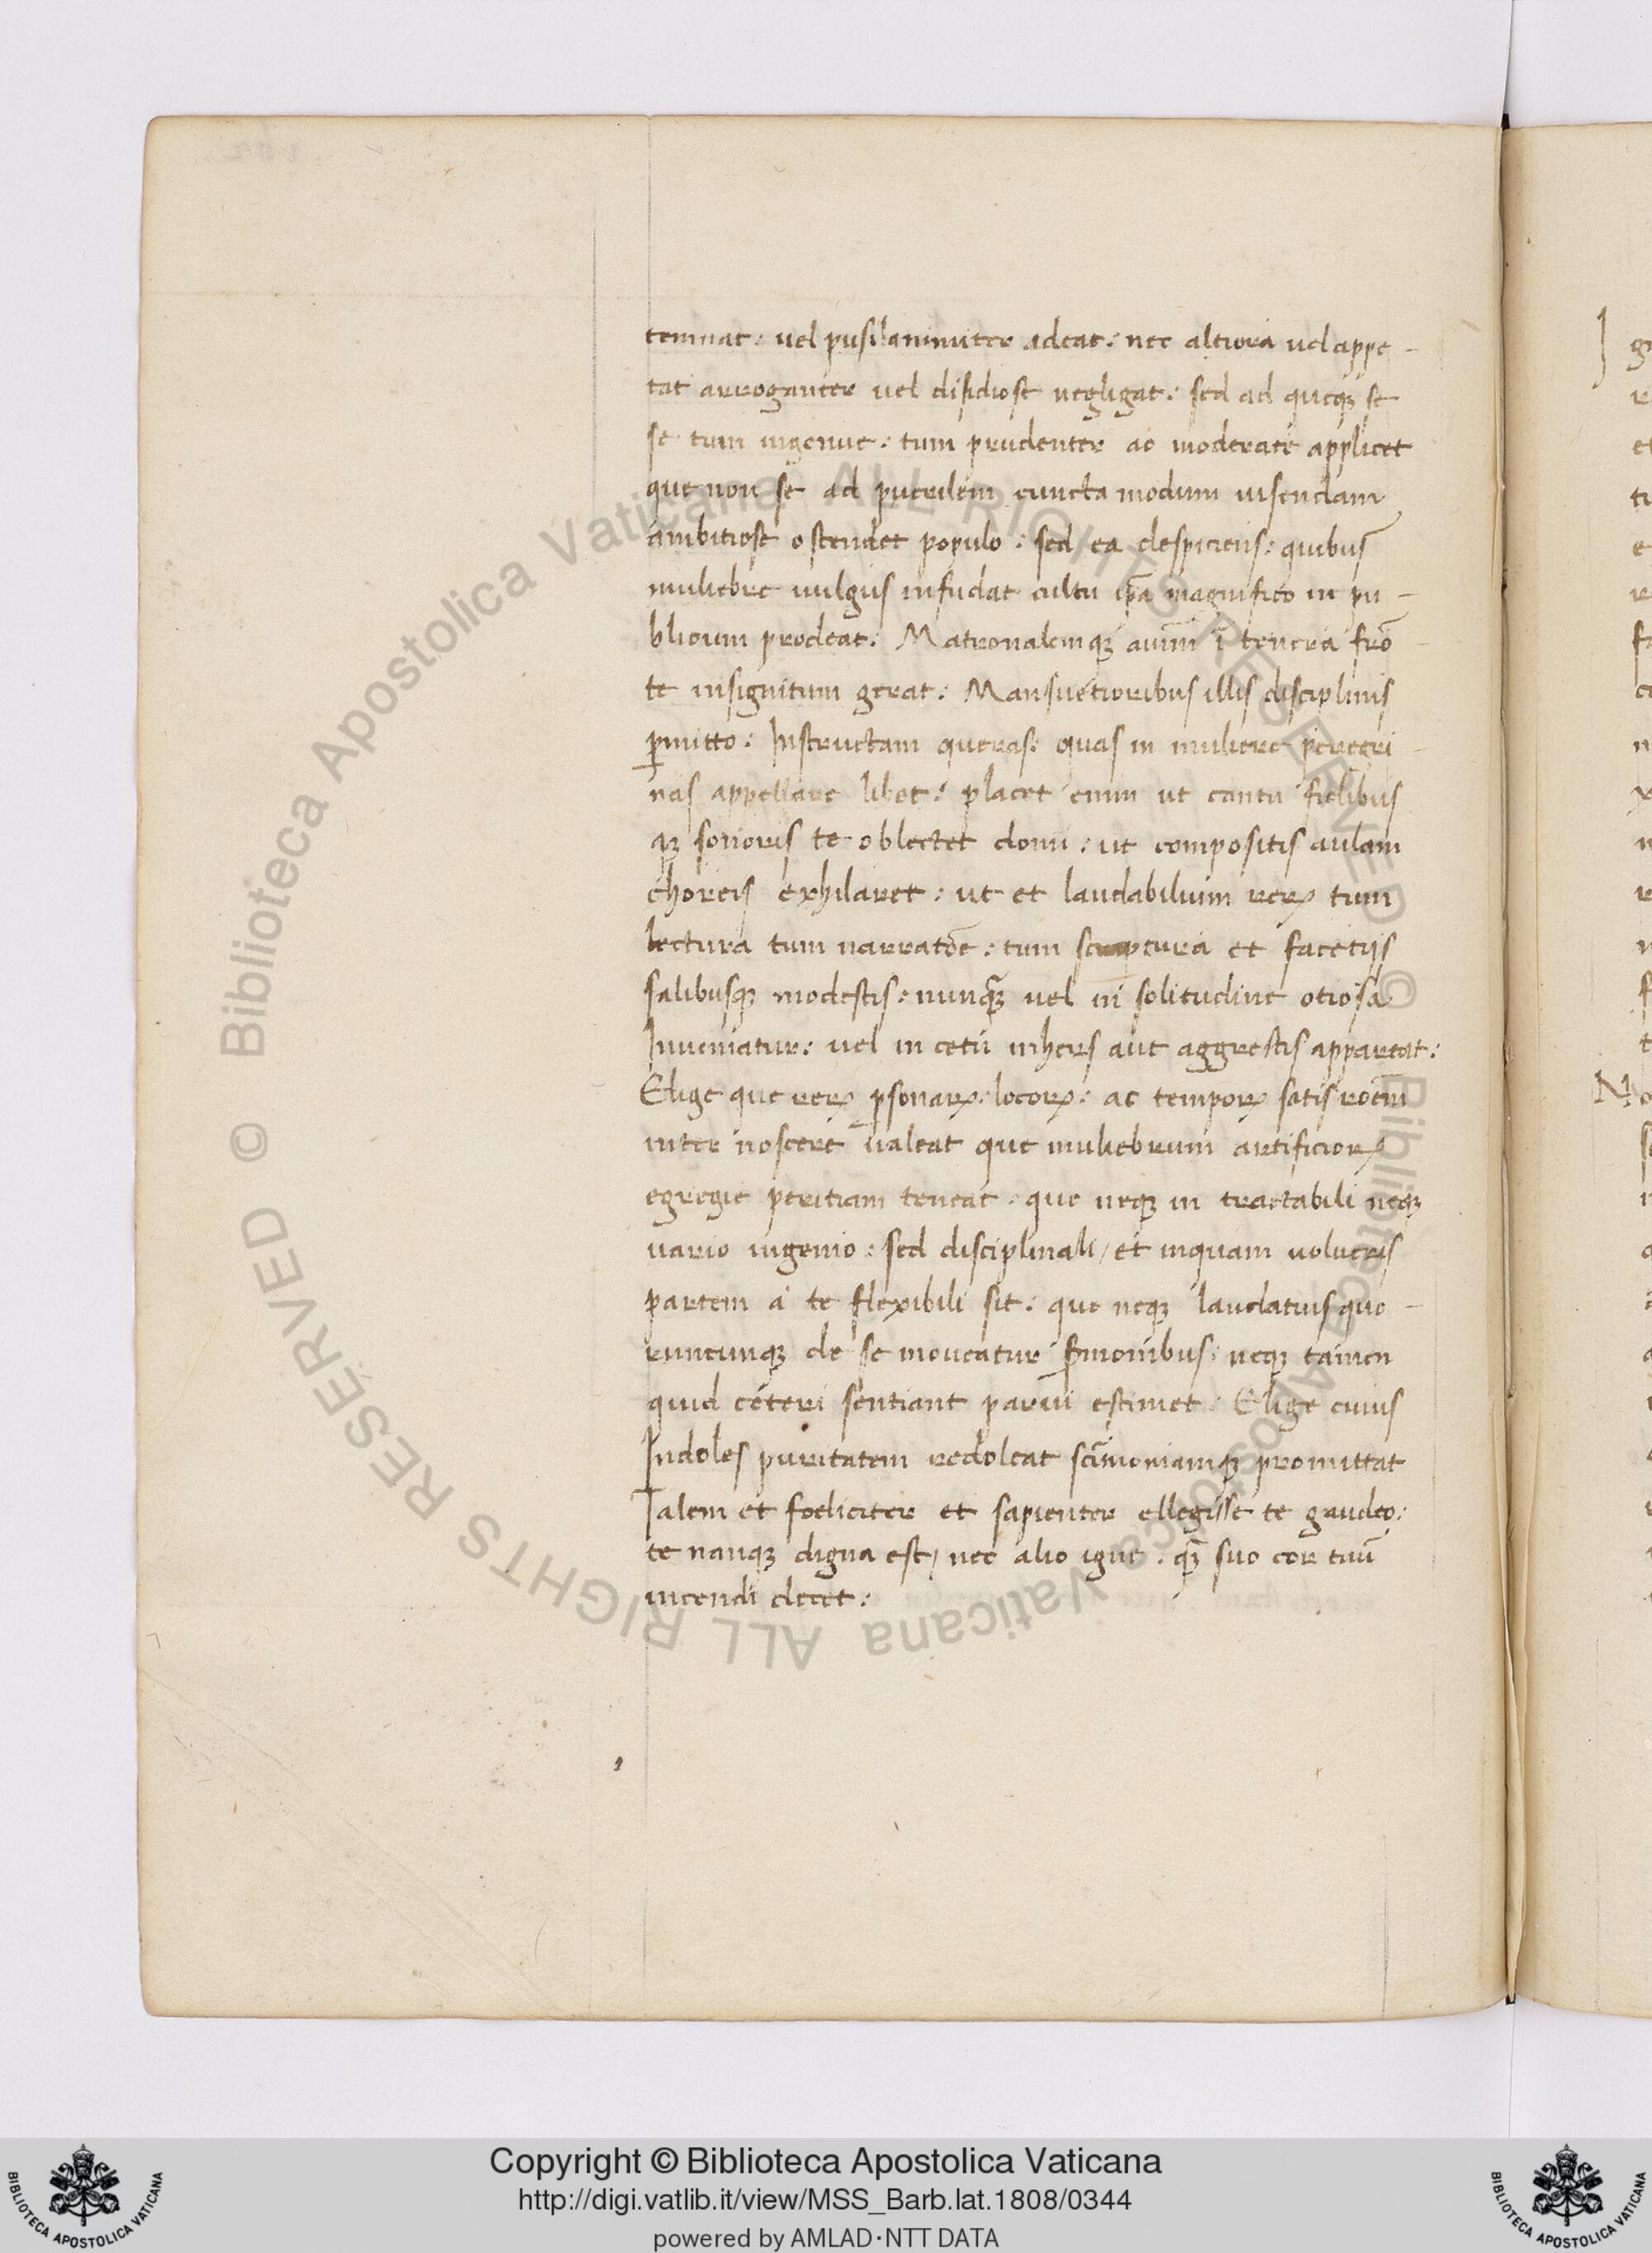 temnat: vel pusilanimiter adeat: nec altiora vel appe-
tat arroganter vel disidiose negligat: sed ad queq se
se tum ingenue: tum prudenter ac moderate applicet
que non se ad puerilem cuncta modum visendam
ambitiose ostendet populo: sed ea despiciens: quibus
muliebre vulgus insudat cultu magnifico in pu-
blicum prodeat: Matronalemq aiũm ĩ tenera frõ
te insignitum gerat: Mansuetioribus illis disciplinis
ꝑmitto: Instructam queras: quas in muliere peregri-
nas appellare libet: placet enim ut cantu fidibus
q sonoris te oblectet domi: ut compositis aulam
choreis exhilaret: ut et laudabilium reꝝ tum
lectura tum narratõe: tum scriptura et facetijs
salibusq modestis: nunq̃ vel in solitudine otiosa
Inveniatur: vel in cetu inhers aut aggrestis appareat:
Elige que reꝝ ꝑsonaꝝ: locoꝝ: ac tempoꝝ satis roẽm
inter noscere valeat que muliebrium artificioꝝ
egregie peritiam teneat: que neq in tractabili neq
vario ingenio: sed disciplinali/ et inquam volueris
partem a te flexibili sit: que neq laudatius quo-
runcunq de se moveatur ẜmonibus: neq tamen
quid ceteri sentiant parvi estimet: Elige cuius
Indoles puritatem redoleat scĩmoniamq promittat
Talem et foeliciter et sapienter ellegisse te gaudeo:
te nanq digna est/ nec alio igne: q̃ suo cor tuũ
incendi decet:
© Biblioteca Apostolica Vaticana ALL RIGHTS RESERVED © Biblioteca Apostolica Vaticana ALL RIGHTS RESERVED
Copyright © Biblioteca Apostolica Vaticana
http://digi.vatlib.it/view/MSS_Barb.lat.1808/0344
powered by AMLAD·NTT DATA
BIBLIOTECA APOSTOLICA VATICANA
BIBLIOTECA APOSTOLICA VATICANA